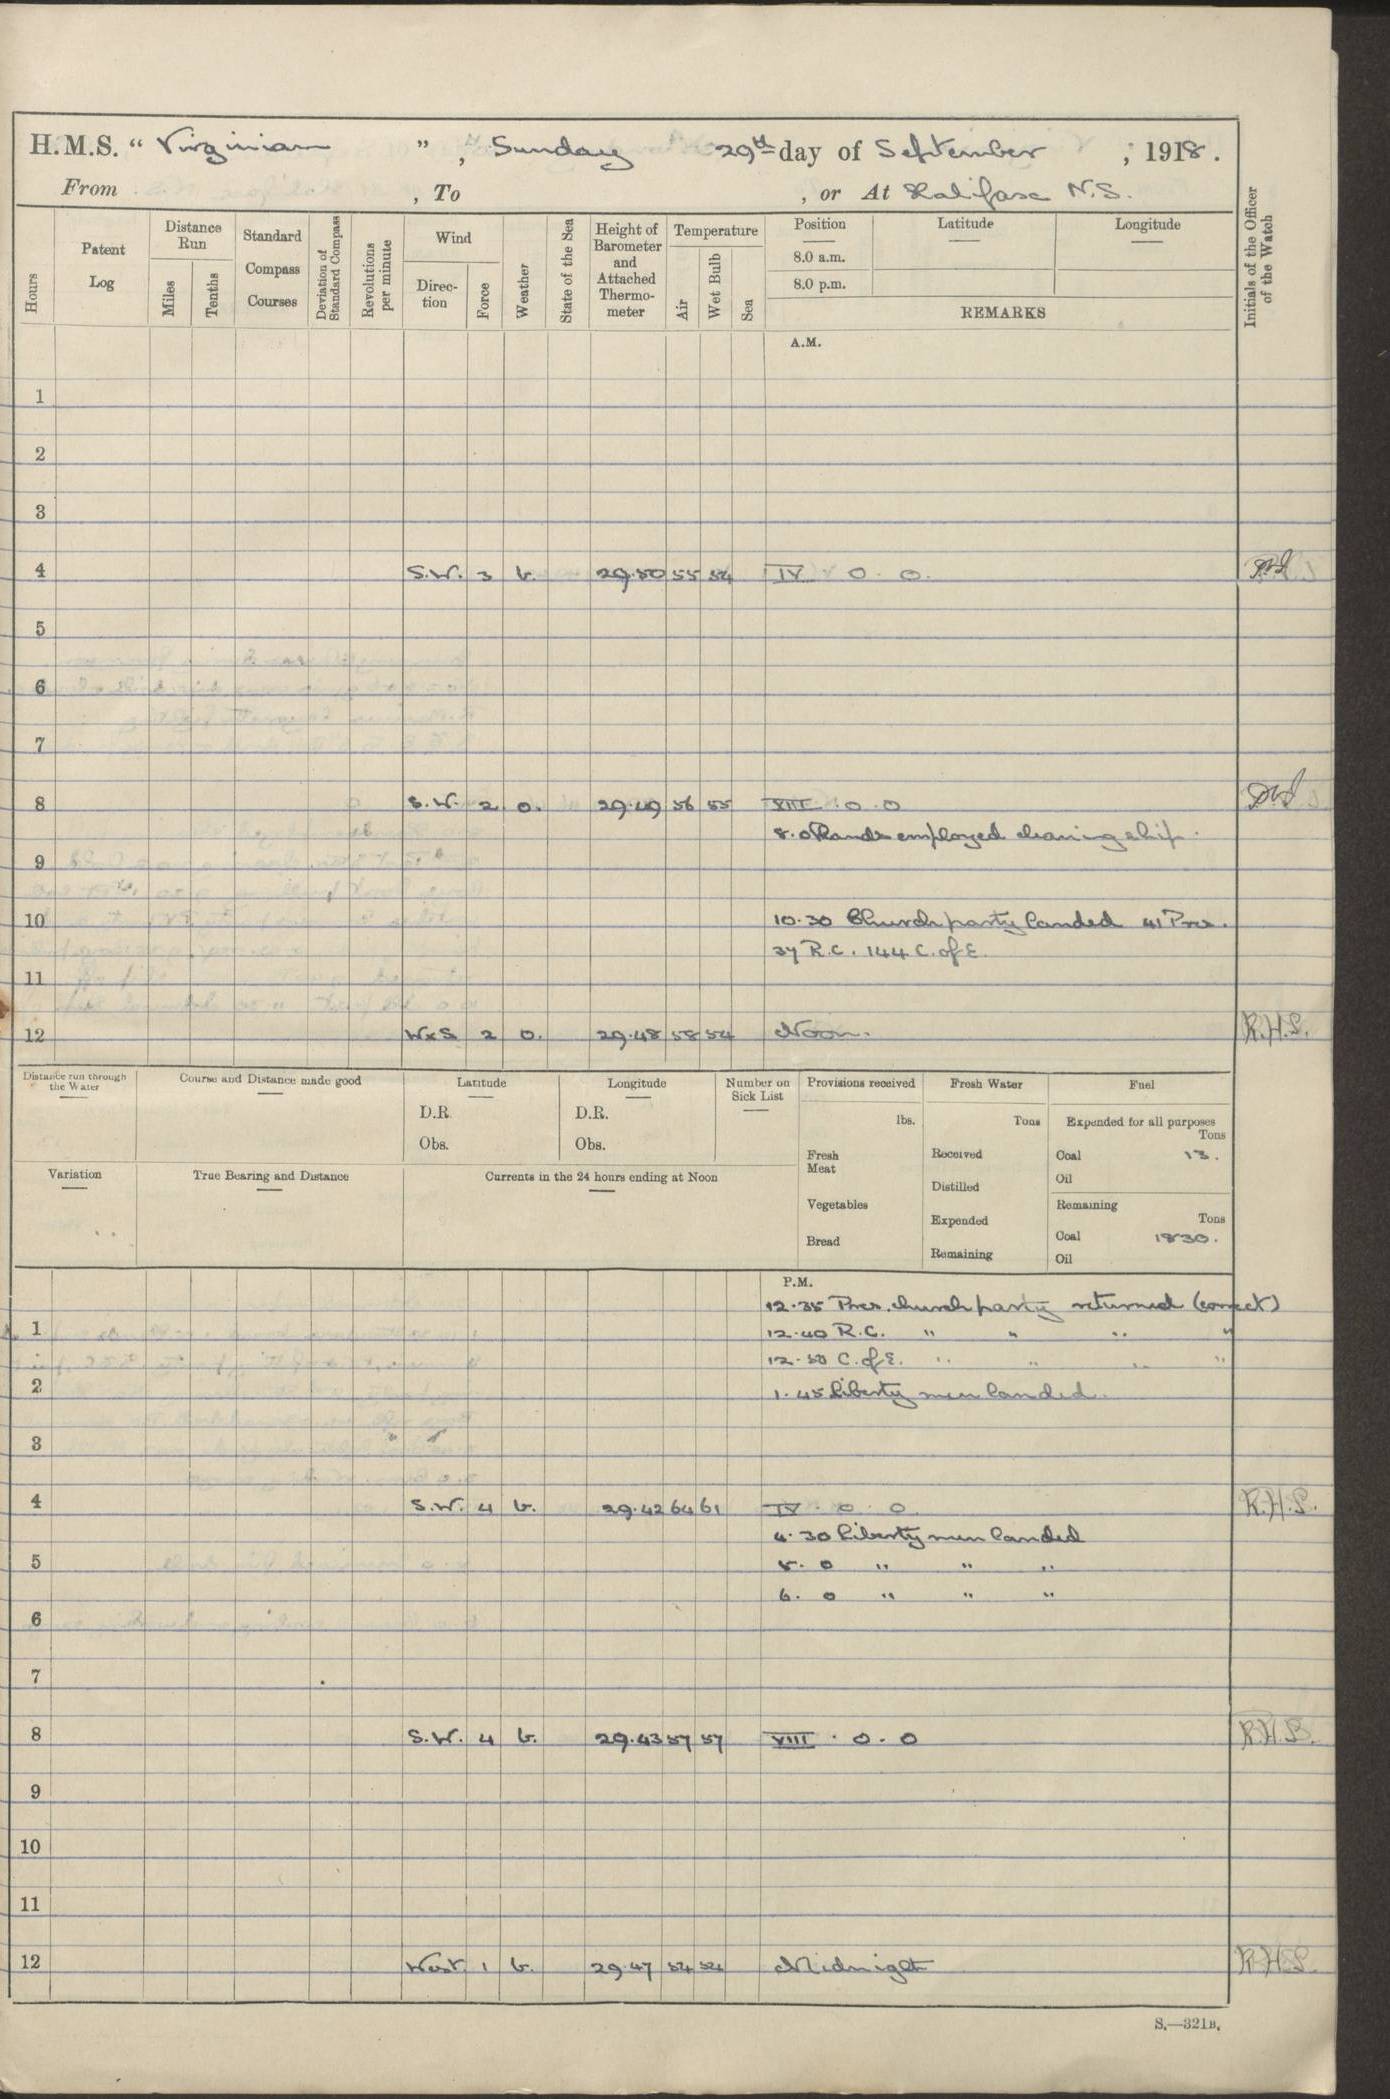 H.M.S. “ Virginian ” , Sunday 29th day of September ; 1918 .
From , To , or At Halifax N.S.
Hours
Patent Log
Distance Run
Miles
Tenths
Standard Compass Courses
Deviation of Standard Compass
Revolutions per minute
Wind
Direction
Force
Weather
State of the Sea
Height of Barometer and Attached Thermometer
Temperature
Air
Wet Bulb
Sea
Position Latitude Longitude
8.0 a.m.
8.0 p.m.
REMARKS
Initials of the Officer of the Watch
A.M.
1
2
3
4 S.W. 3 b. 29.50 55 54 IV 0. 0.
5
6
7
8 S.W. 2 o. 29.49 56 55 VIII. 0. 0
8.0 Hands employed cleaning ship.
9
10 10.30 Church party landed 41 Pres.
37 R.C. 144 C. of E.
11
12 WxS 2 o. 29.48 58 54 Noon. R.H.S.
Distance run through the Water
Course and Distance made good
Latitude
D.R.
Obs.
Longitude
D.R.
Obs.
Number on Sick List
Provisions received
lbs.
Fresh Meat
Vegetables
Bread
Fresh Water
Tons
Received
Distilled
Expended
Remaining
Fuel
Expended for all purposes
Tons
Coal 13.
Oil
Remaining
Tons
Coal 1830.
Oil
Variation
True Bearing and Distance
Currents in the 24 hours ending at Noon
P.M.
12.35 Pres. church party returned (correct)
1 12.40 R.C. " " " "
12.50 C. of E. " " " "
2 1.45 Liberty men landed.
3
4 S.W. 4 b. 29.42 64 61 IV. 0. 0 R.H.S.
4.30 Liberty men landed
5 5. 0 " " "
6. 0 " " "
6
7
8 S.W. 4 b. 29.43 57 57 VIII. 0. 0 R.H.S.
9
10
11
12 West. 1 b. 29.47 54 54 Midnight R.H.S.
S.—321B.